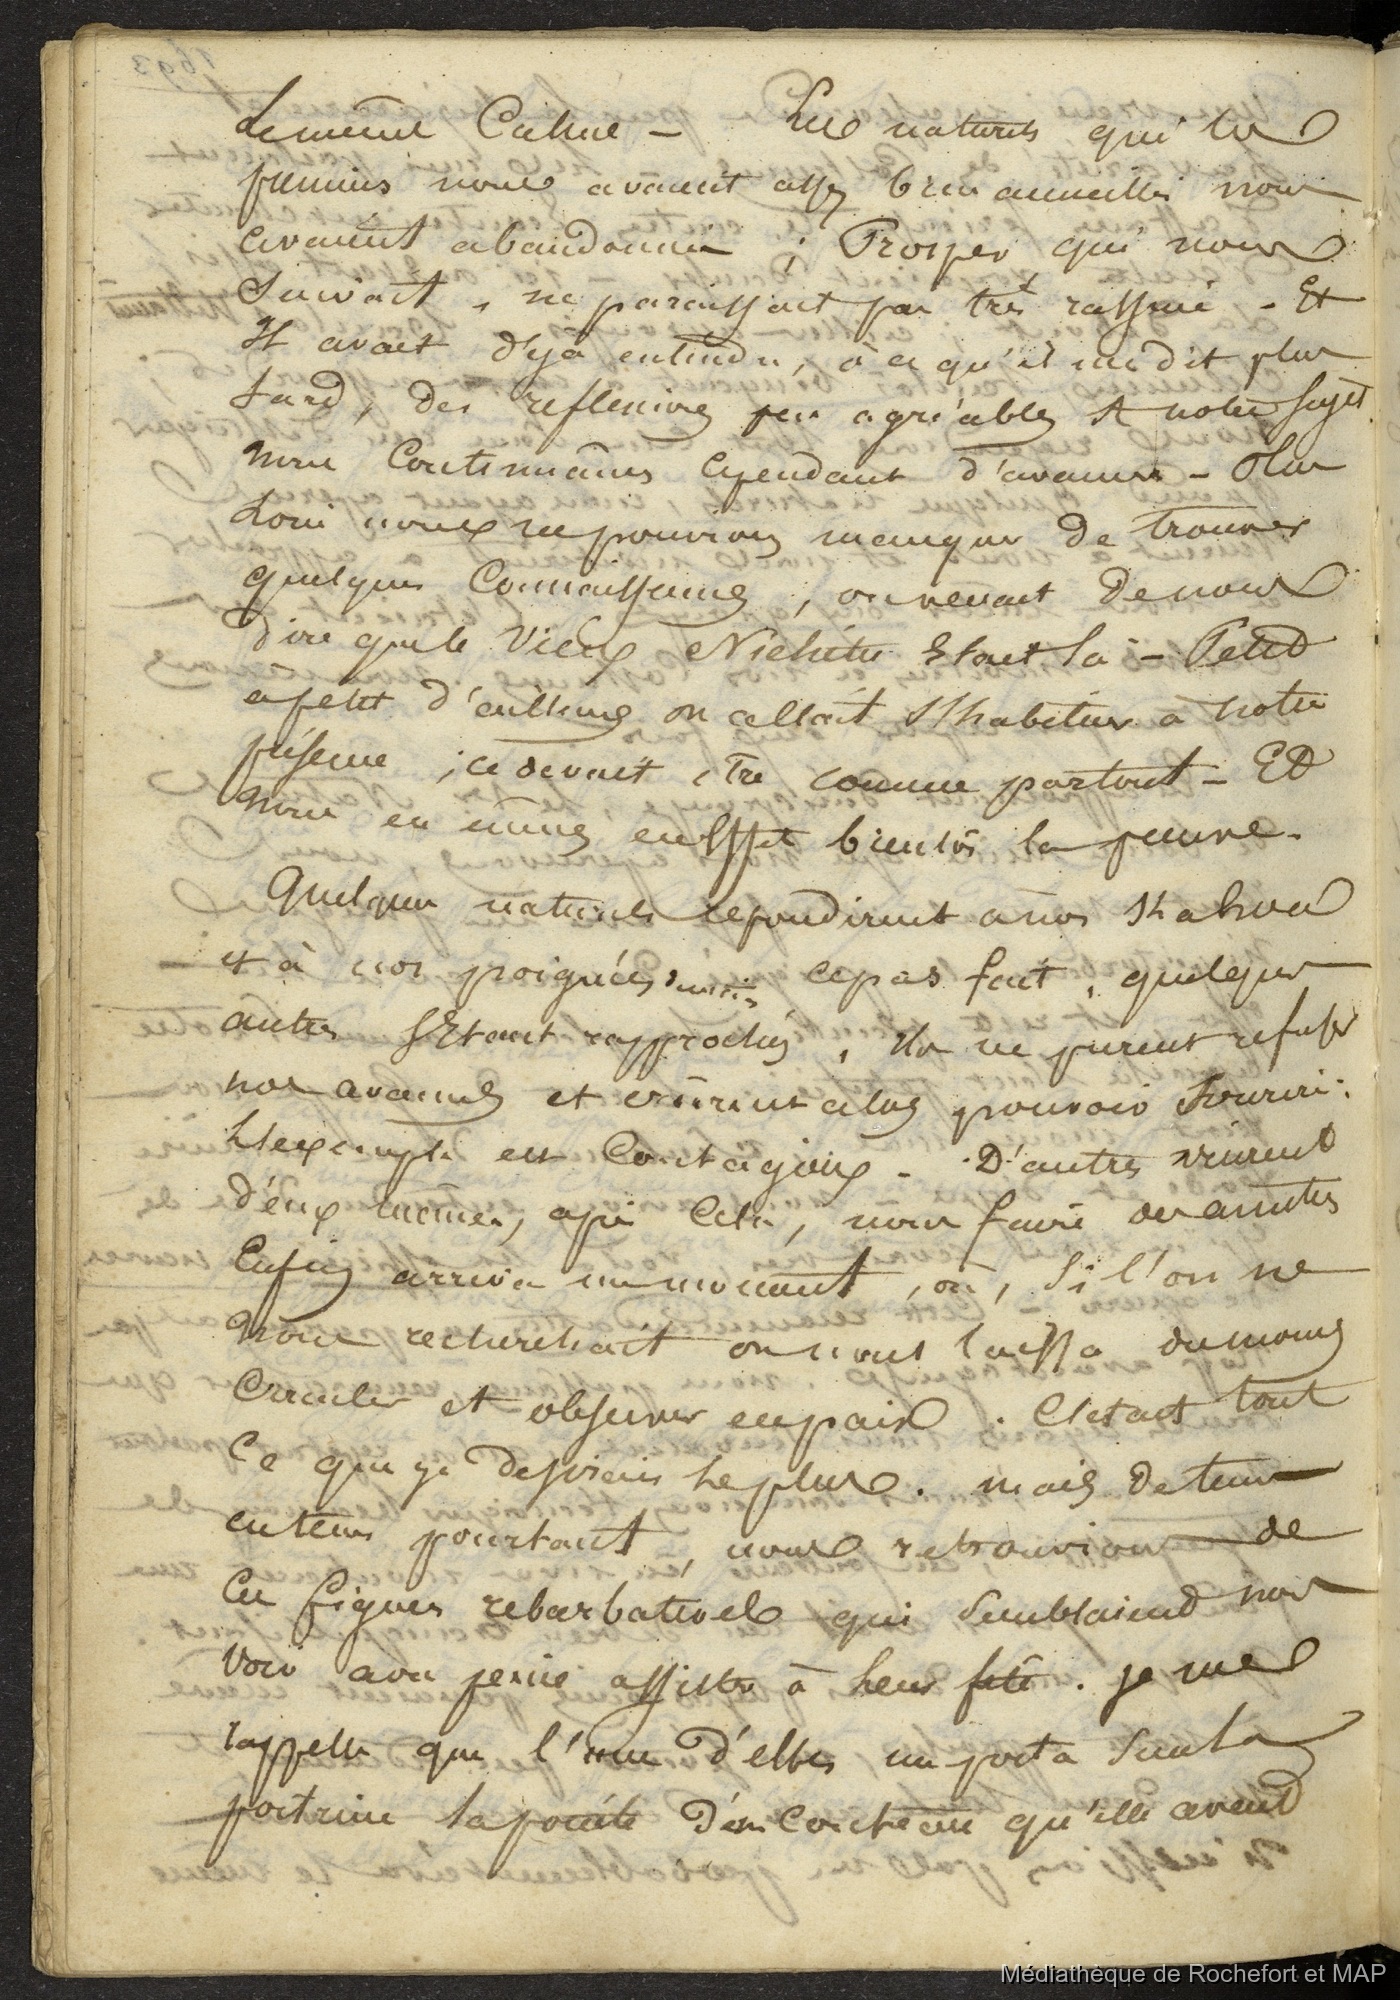 Le même Calme – Les naturels qui les
premiers nous avaient assez bien accueillis nous
avaient abandonnés ; Prosper qui nous
Suivait, ne paraissait pas très rassuré – Et
Il avait déjà entendu, à ce qu'il me dit plus
tard, des reflexions peu agréables à notre sujet
Nous Continuâmes Cependant d'avancer – Plus
Loin nous ne pouvions manquer de trouver
quelques Connaissances, on venait de nous
dire que le Vieux Nichitu Etait là – Petit
a petit d'ailleurs on allait s'habituer à notre
présence ; ce devait être comme partout – Et
Nous en eûmes en effet bientôt la preuve.
Quelques naturels repondirent à nos
et à nos poignées de mains ce pas fait, quelques
autres S'Etant rapprochés, ils ne purent refuser
nos avances et crûrent alors pouvoir Sourire :
L'exemple est Contagieux – D'autres vinrent
d'eux mêmes, après Cela, nous faire des amitiés
Enfin arriva un moment, où, Si l'on ne
Nous recherchait on nous laissa du moins
Circuler et observer en paix. C'etait tout
Ce que je desirais le plus. mais de tems
en tems pourtant, nous retrouvions de
Ces figures rebarbatives qui Semblaient nous
Voir avec peine assister à leur fête. je me
rappelle que l'une d'elles me porta Sur la
poitrine la pointe d'un Couteau qu'elle avait
Médiathèque de Rochefort et MAP